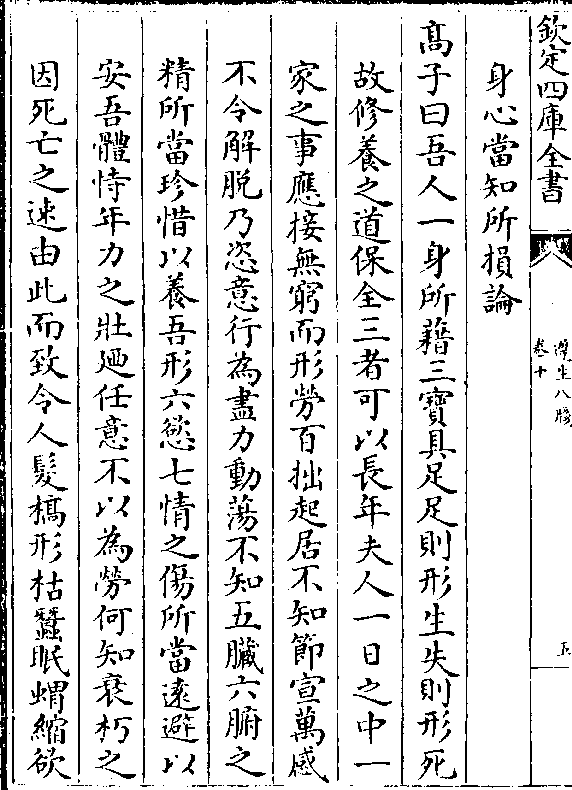 欽定四庫全書
遵生八牋
卷十
五
身心當知所損論
髙子曰吾人一身所藉三寶具足足則形生失則形死
故修養之道保全三者可以長年夫人一日之中一
家之事應接無窮而形勞百拙起居不知節宣萬感
不令解脱乃恣意行為盡力動蕩不知五臟六腑之
精所當珍惜以養吾形六慾七情之傷所當逺避以
安吾體恃年力之壯廼任意不以為勞何知衰朽之
因死亡之速由此而致令人髮槁形枯蠶眠蝟縮欲